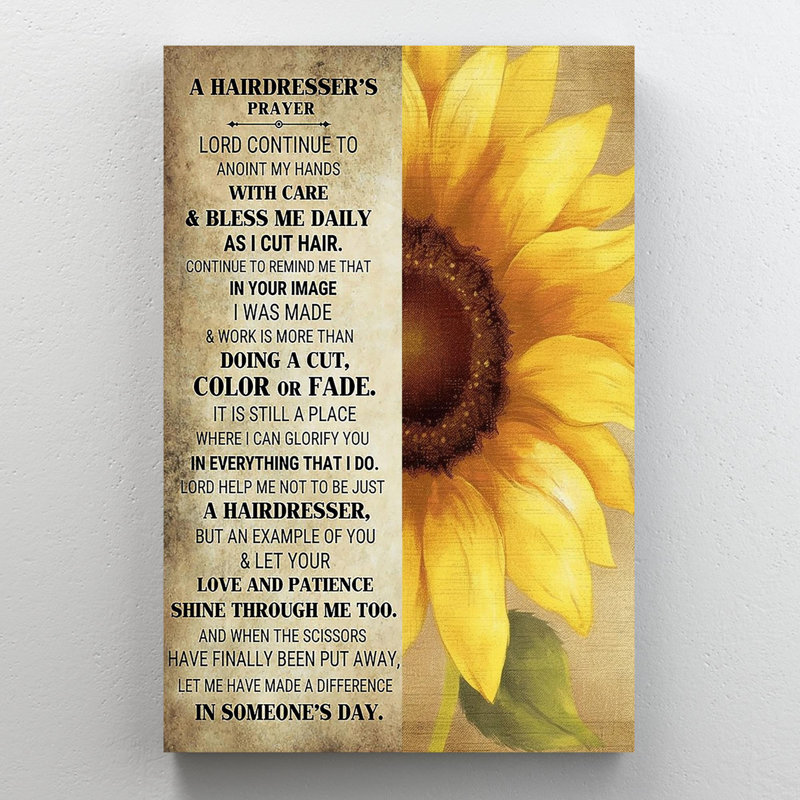 A HAIRDRESSER'S
PRAYER
LORD CONTINUE TO
ANOINT MY HANDS
WITH CARE
& BLESS ME DAILY
AS I CUT HAIR.
CONTINUE TO REMIND ME THAT
IN YOUR IMAGE
I WAS MADE
& WORK IS MORE THAN
DOING A CUT,
COLOR OR FADE.
IT IS STILL A PLACE
WHERE I CAN GLORIFY YOU
IN EVERYTHING THAT I DO.
LORD HELP ME NOT TO BE JUST
A HAIRDRESSER,
BUT AN EXAMPLE OF YOU
& LET YOUR
LOVE AND PATIENCE
SHINE THROUGH ME TOO.
AND WHEN THE SCISSORS
HAVE FINALLY BEEN PUT AWAY,
LET ME HAVE MADE A DIFFERENCE
IN SOMEONE'S DAY.